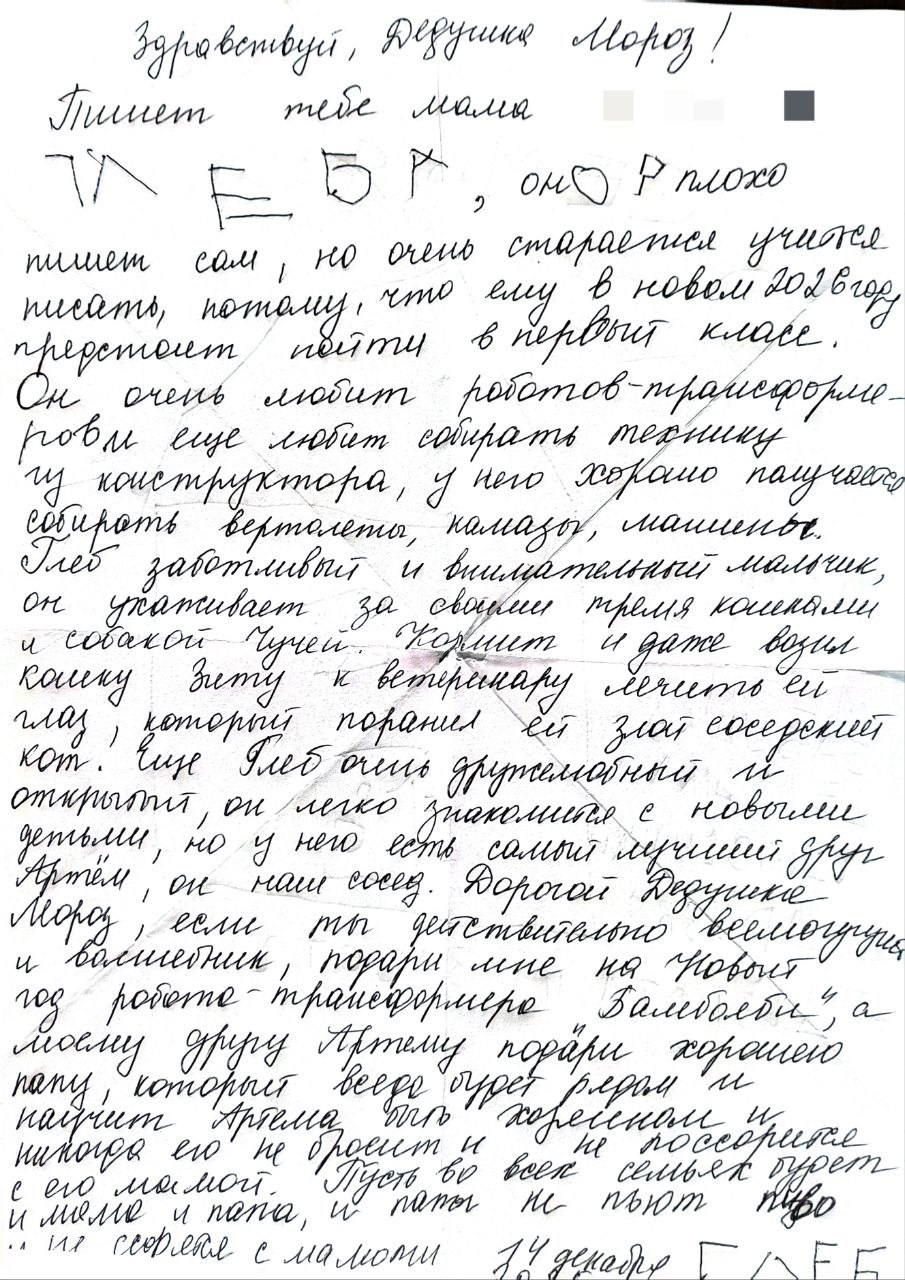 Здравствуй, Дедушка Мороз!
Пишет тебе мама
ГЛЕБА, он ОР плохо
пишет сам, но очень старается учится
писать, потому, что ему в новом 2026 году
предстоит пойти в первый класс.
Он очень любит роботов-трансформе-
ров и еще любит собирать технику
из конструктора, у него хорошо получается
собирать вертолеты, камазы, машины.
Глеб заботливый и внимательный мальчик,
он ухаживает за своими тремя кошками
и собакой Чучей. Кормит и даже возил
кошку Зиту к ветеринару лечить ей
глаз, который поранил ей злой соседский
кот. Еще Глеб очень дружелюбный и
открытый, он легко знакомится с новыми
детьми, но у него есть самый лучший друг
Артём, он наш сосед. Дорогой Дедушка
Мороз, если ты действительно всемогущий
и волшебник, подари мне на Новый
год робота-трансформера "Бамболби", а
моему другу Артему подари хорошего
папу, который всегда будет рядом и
научит Артема быть хозяином и
никогда его не бросит и не поссорится
с его мамой. Пусть во всех семьях будет
и мама и папа, и папы не пьют пиво
не ссорятся с мамами
14 декабря ГЛЕБ